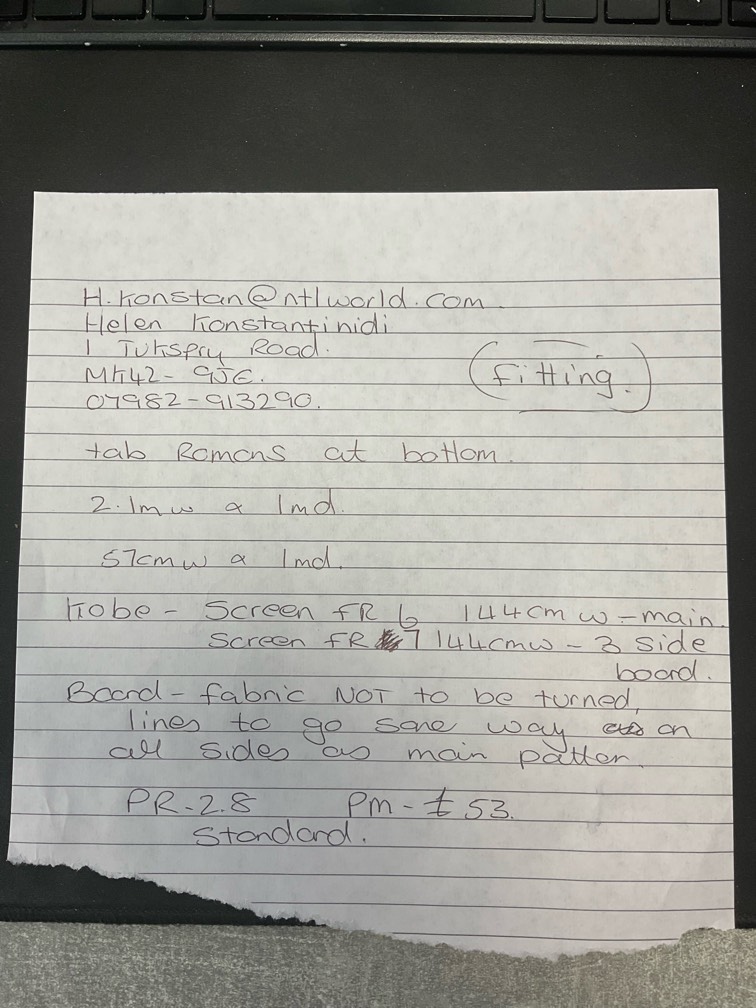 H.Konstan@ntlworld.com
Helen Konstantinidi
1 Road.
MK42-9JE.
07982-913290.
(fitting.)
tab Romans at bottom.
2.1m w x 1md.
57cm w x 1md.
Kobe - Screen FR 6 144cm w - main.
Screen FR 7 144cmw - 3 side
board.
Board - fabric NOT to be turned,
lines to go same way on
all sides as main patter.
PR-2.8 Pm-£53.
Standard.